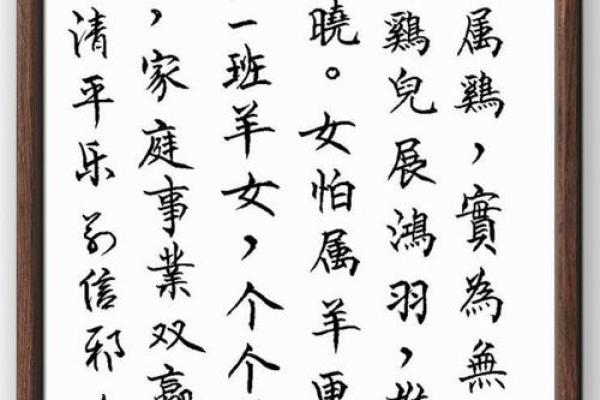 属鷄，實為無
鷄兒展鴻羽，
曉。女怕属羊更
一班羊女，个个
，家庭事業双贏
清平乐 勿信邪